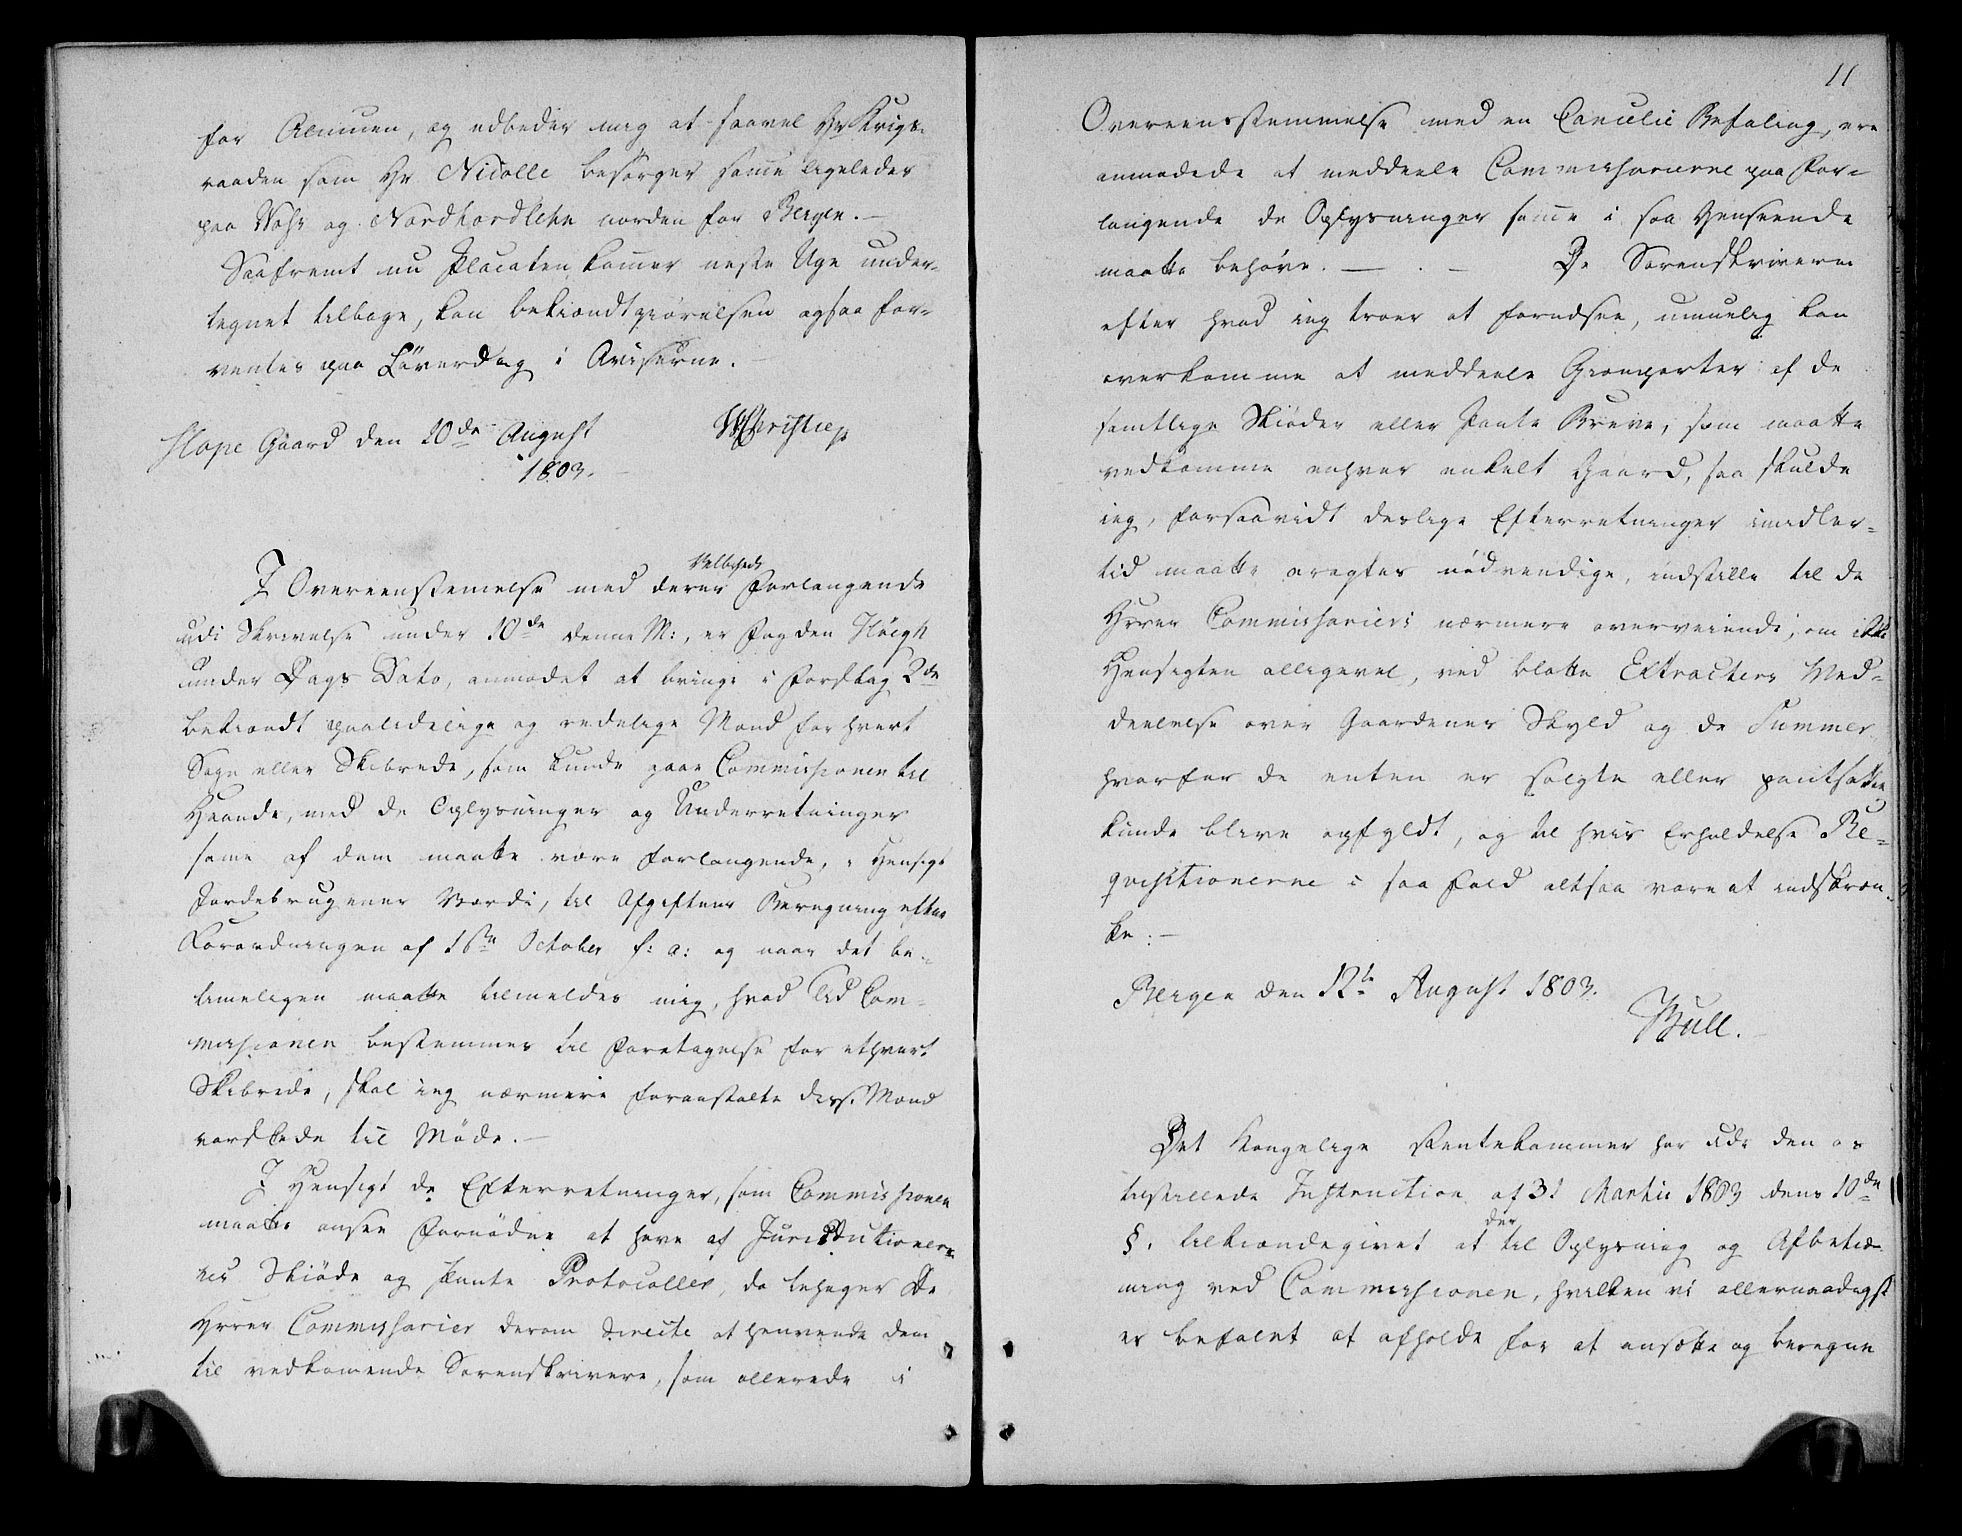 for Almuen, og udbeder mig at saavel Hr Krigs-
raaden som Hr Nicolle besørger samme ligeledes
paa Voss og Nordhordlehn norden for Bergen.—
Saafremt nu Placaten kommer neste Uge under-
tegnet tilbage, kan bekiendtgiørelsen ogsaa for-
ventes paa Løverdag i Aviserne.
Hope Gaard den 10de August
1803.
WChristie
I Overeenstemelse med deres Velbyrds Forlangende
udi Skrivelse under 10de denne M:, er Fogden Høegh
under Dags Dato, anmodet at bringe i Forslag 2de
bekiendt paalidelige og redelige Mænd for hvert
Sogn eller Skibrede, som kunde gaae Commissionen til
Haande, med de Oplysninger og Underretninger
same af dem maatte være forlangende, i Hensigt
Jordebrugenes Værdi, til Afgiftens Beregning efter
Forordningen af 1ste October f: a: og naar det be-
timeligen maatte tilmeldes mig, hvad Tid Com-
missionen bestemmer til Foretagelse for ethvert
Skibrede, skal ieg nærmere foranstalte disse Mænd
varslede til Møde.—
I Hensigt de Efterretninger, som Commissionen
maatte ansee fornødne at have af Jurisdictioner-
nes Skiøde og Pante Protocoller, da behager De
Herrer Commissarier derom directe at henvende dem
til vedkomende Sorenskrivere, som allerede i
11
Overeensstemmelse med en Cancelie Befaling, ere
anmodede at meddeele Commissarierne paa For-
langende de Oplysninger samme i saa Henseende
maatte behøve. — . — De Sorenskriverne
efter hvad ieg troer at forudsee, umuelig kan
overkomme at meddeele Gienparter af de
samtlige Skiøder eller Pante Breve, som maatte
vedkomme enhver enkelt Gaard, saa skulde
ieg, forsaavidt deslige Efterretninger imidler-
tid maatte eragtes nødvendige, indstille til de
Herrer Commissariers nærmere overveiende, om ikke
Hensigten alligevel, ved blotte Extracters Med-
deelelse over Gaardenes Skyld og de Summer
hvorfor de enten er solgte eller pantsatte
kunde blive opfyldt, og til hvis Erholdelse Re-
qvisitionerne i saa Fald altsaa vare at indskræn-
ke.—
Bergen den 12te August 1803.
Bull.
Det Kongelige Rentekammer har udi den os
tilstillede Instruction af 31 Martii 1803 dens 10de
§. tilkiendegivet at der til Oplysning og Afbetie-
ning ved Commissionen, hvilken vi allernaadigst
er befalet at afholde for at ansætte og beregne